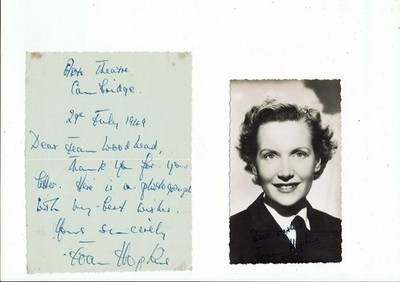 Arts Theatre
Cambridge.
2nd July 1949.
Dear Jean Woodhead,
Thank you for your
letter. Here is a photograph
with my best wishes.
Yours sincerely
Joan Hopkins
Best wishes
Joan Hopkins